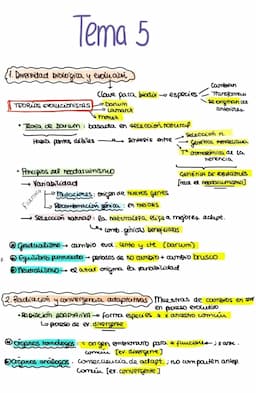 Tema 5
1. Diversidad biológica y evolución
Clave para biodiv → especies
Cambian
Transforman
Se originan de anteriores
TEORÍAS EVOLUCIONISTAS → Darwin
→ Lamarck
→
• Teoría de Darwin: basada en selección natural
Había puntos débiles → Síntesis entre
Selección n.
Genética
Tª cromosómica de la herencia
Genética de
[real el neodarwinismo]
• Principios del neodarwinismo
→ Variabilidad
Mutaciones: origen de nuevos genes
Recombinación génica: en meiosis
→ Selección natural: la naturaleza elige a mejores adapt.
↳ comb. génica beneficiosas
Gradualismo → cambio evol. lento y cte (Darwin)
Equilibrio puntuado → periodos de no cambio + cambio brusco
Neutralismo → el azar origina la variabilidad
2. Radiación y convergencia adaptativas
Muestras de cambios en ser en proceso evolutivo
• Radiación adaptativa → forma especies a ancestro común
↳ proceso de ev. divergente
Órganos homólogos → origen embrionario para ≠ función
común [ev. divergente]
Órganos análogos: consecuencia de adapt.; no comparten antep. común [ev. convergente]